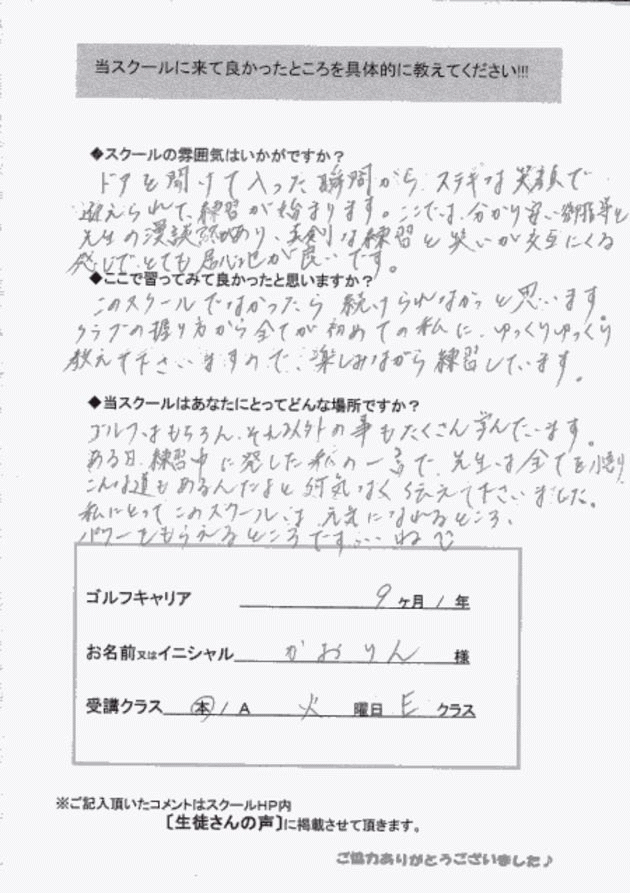 当スクールに来て良かったところを具体的に教えてください!!!
◆スクールの雰囲気はいかがですか？
ドアを開けて入った瞬間から、ステキな笑顔で
迎えられて、練習が始まります。ここでは、分かり安い御指導と
先生の漫談？があり、真剣な練習と笑いが交互にくる
感じで、とても居心地が良いです。
◆ここで習ってみて良かったと思いますか？
このスクールでなかったら続けられなかったと思います。
クラブの握り方から全てが初めての私に、ゆっくりゆっくり
教えて下さいますので、楽しみながら練習しています。
◆当スクールはあなたにとってどんな場所ですか？
ゴルフはもちろん、それ以外の事もたくさん学んでいます。
ある日、練習中に発した私の一言で、先生は全てを悟り
こんな道もあるんだよと何気なく伝えて下さいました。
私にとってこのスクールは、元気になれるところ、
パワーをもらえるところです…ね
ゴルフキャリア 9ヶ月/年
お名前又はイニシャル かおりん 様
受講クラス 本/A 火 曜日 E クラス
※ご記入頂いたコメントはスクールHP内
〔生徒さんの声〕に掲載させて頂きます。
ご協力ありがとうございました♪